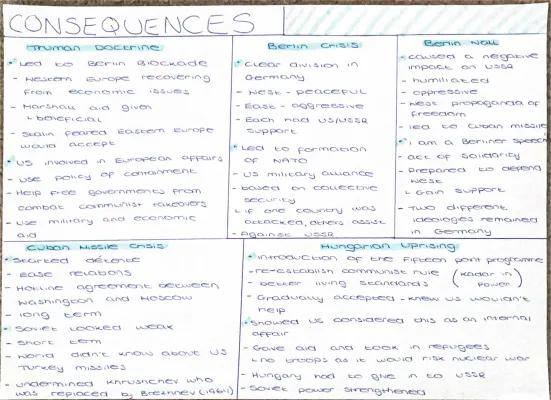 CONSEQUENCES
Truman Doctrine
Led to Berlin Blockade
- Western Europe recovering
from economic issues
- Marshall aid given
↳ beneficial
- Stalin feared Eastern Europe
would accept
US involved in European affairs
- use policy of containment
- Help free governments from
combat communist takeovers
- use military and economic
aid
Berlin Crisis
Clear division in
Germany
- West - peaceful
- East - aggressive
- Each had US/USSR
support
Led to formation
of NATO
- US military alliance
- based on collective
security
↳ if one country was
attacked, others assist
- Against USSR
Berlin Wall
caused a negative
impact on USSR
- humiliated
- oppressive
- West propaganda of
freedom
- led to Cuban missile
I am a Berliner speech
- act of solidarity
- Prepared to defend
West
↳ Gain support
- Two different
ideologies remained
in Germany
Cuban Missile Crisis
Started détente
- Ease relations
- Hotline agreement between
Washington and Moscow
- long term
Soviet looked weak
- short term
- World didn't know about US
Turkey missiles
- undermined Khrushchev who
was replaced by Brezhnev (1964)
Hungarian Uprising
introduction of the Fifteen point programme
- re-establish communist rule (Kadar in power)
- better living standards
- Gradually accepted - knew US wouldn't
help
Showed US considered this as an internal
affair
- Gave aid and took in refugees
↳ no troops as it would risk nuclear war
- Hungary had to give in to USSR
- Soviet power strengthened